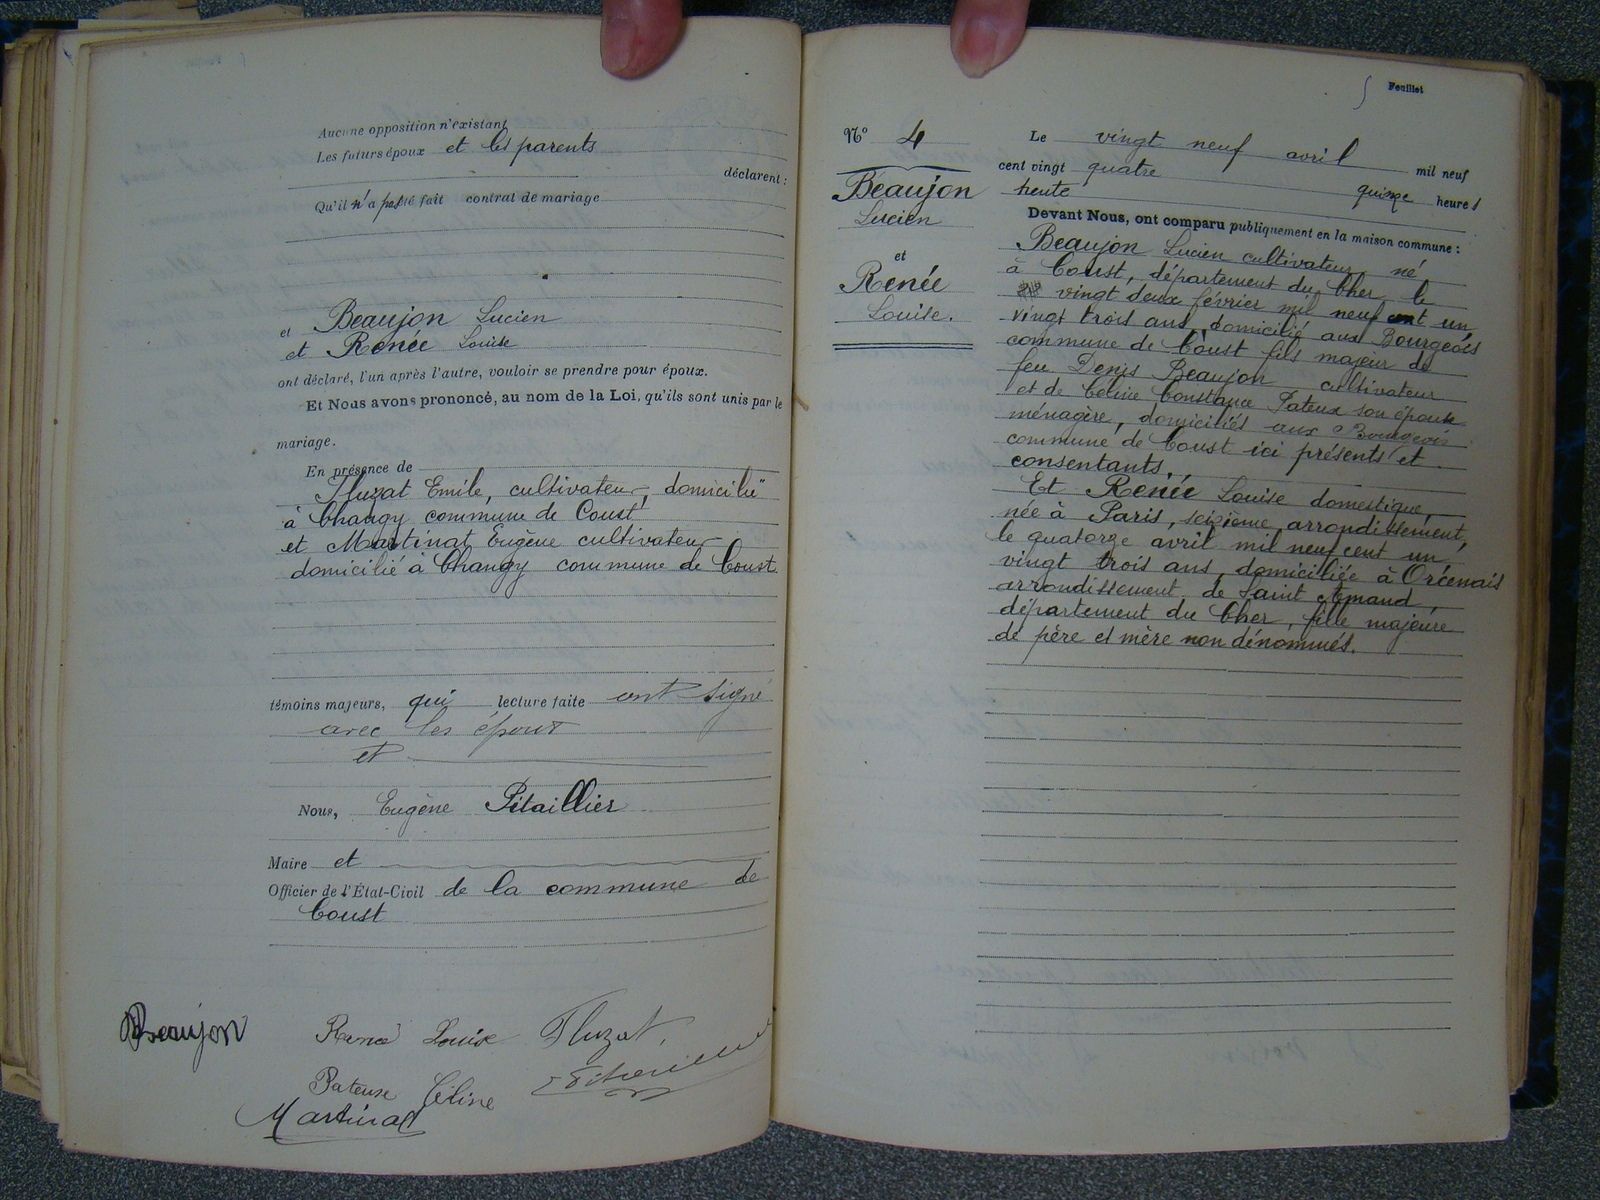 Aucune opposition n'existant
Les futurs époux et les parents
déclarent :
Qu'il n'a pas été fait contrat de mariage
et Beaujon Lucien
et Renée Louise
ont déclaré, l'un après l'autre, vouloir se prendre pour époux.
Et Nous avons prononcé, au nom de la Loi, qu'ils sont unis par le
mariage.
En présence de
Fluzat Emile, cultivateur, domicilié
à Changy commune de Coust
et Martinat Eugène cultivateur
domicilié à Changy commune de Coust.
témoins majeurs, qui lecture faite ont signé
avec les époux
et
Nous, Eugène Pitaillier
Maire et
Officier de l'État-Civil de la commune de
Coust
Beaujon
Renée Louise
Fluzat
Pateux Céline
Martinat
Feuillet
N° 4
Beaujon
Lucien
et
Renée
Louise.
Le vingt neuf avril mil neuf
cent vingt quatre
quinze heures
Devant Nous, ont comparu publiquement en la maison commune :
Beaujon Lucien cultivateur né
à Coust, département du Cher le
vingt deux février mil neuf cent un
vingt trois ans, domicilié aux Bourgeois
commune de Coust fils majeur de
feu Denis Beaujon cultivateur
et de Céline Constance Pateux son épouse
ménagère, domiciliés aux Bourgeois
commune de Coust ici présents et
consentants.
Et Renée Louise domestique,
née à Paris, seizième arrondissement,
le quatorze avril mil neuf cent un
vingt trois ans, domiciliée à Orcenais
arrondissement de Saint Amand,
département du Cher, fille majeure
de père et mère non dénommés.